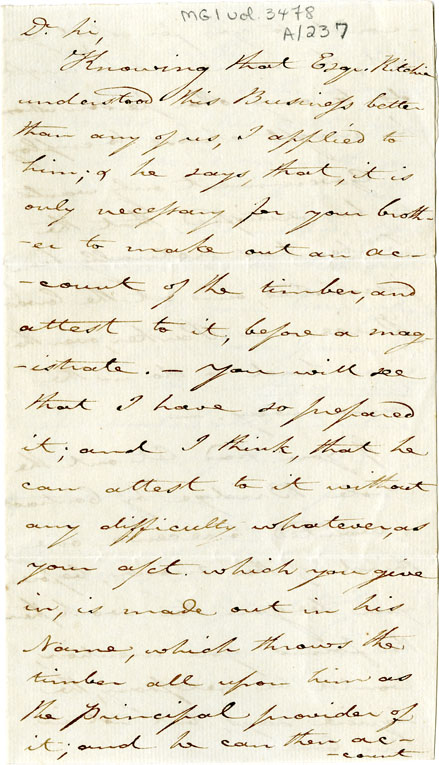 MG1 vol. 3478
A/237
Dr. Sir,
Knowing that Esqr. Ritchie
understood this Business better
than any of us, I applied to
him; & he says, that, it is
only necessary for your broth-
-er to make out an ac-
-count of the timber, and
attest to it, before a mag-
-istrate. — You will see
that I have so prepared
it; and I think, that he
can attest to it without
any difficulty whatever, as
your act. which you give
in, is made out in his
Name, which throws the
timber all upon him as
the Principal provider of
it; and he can then ac-
-count